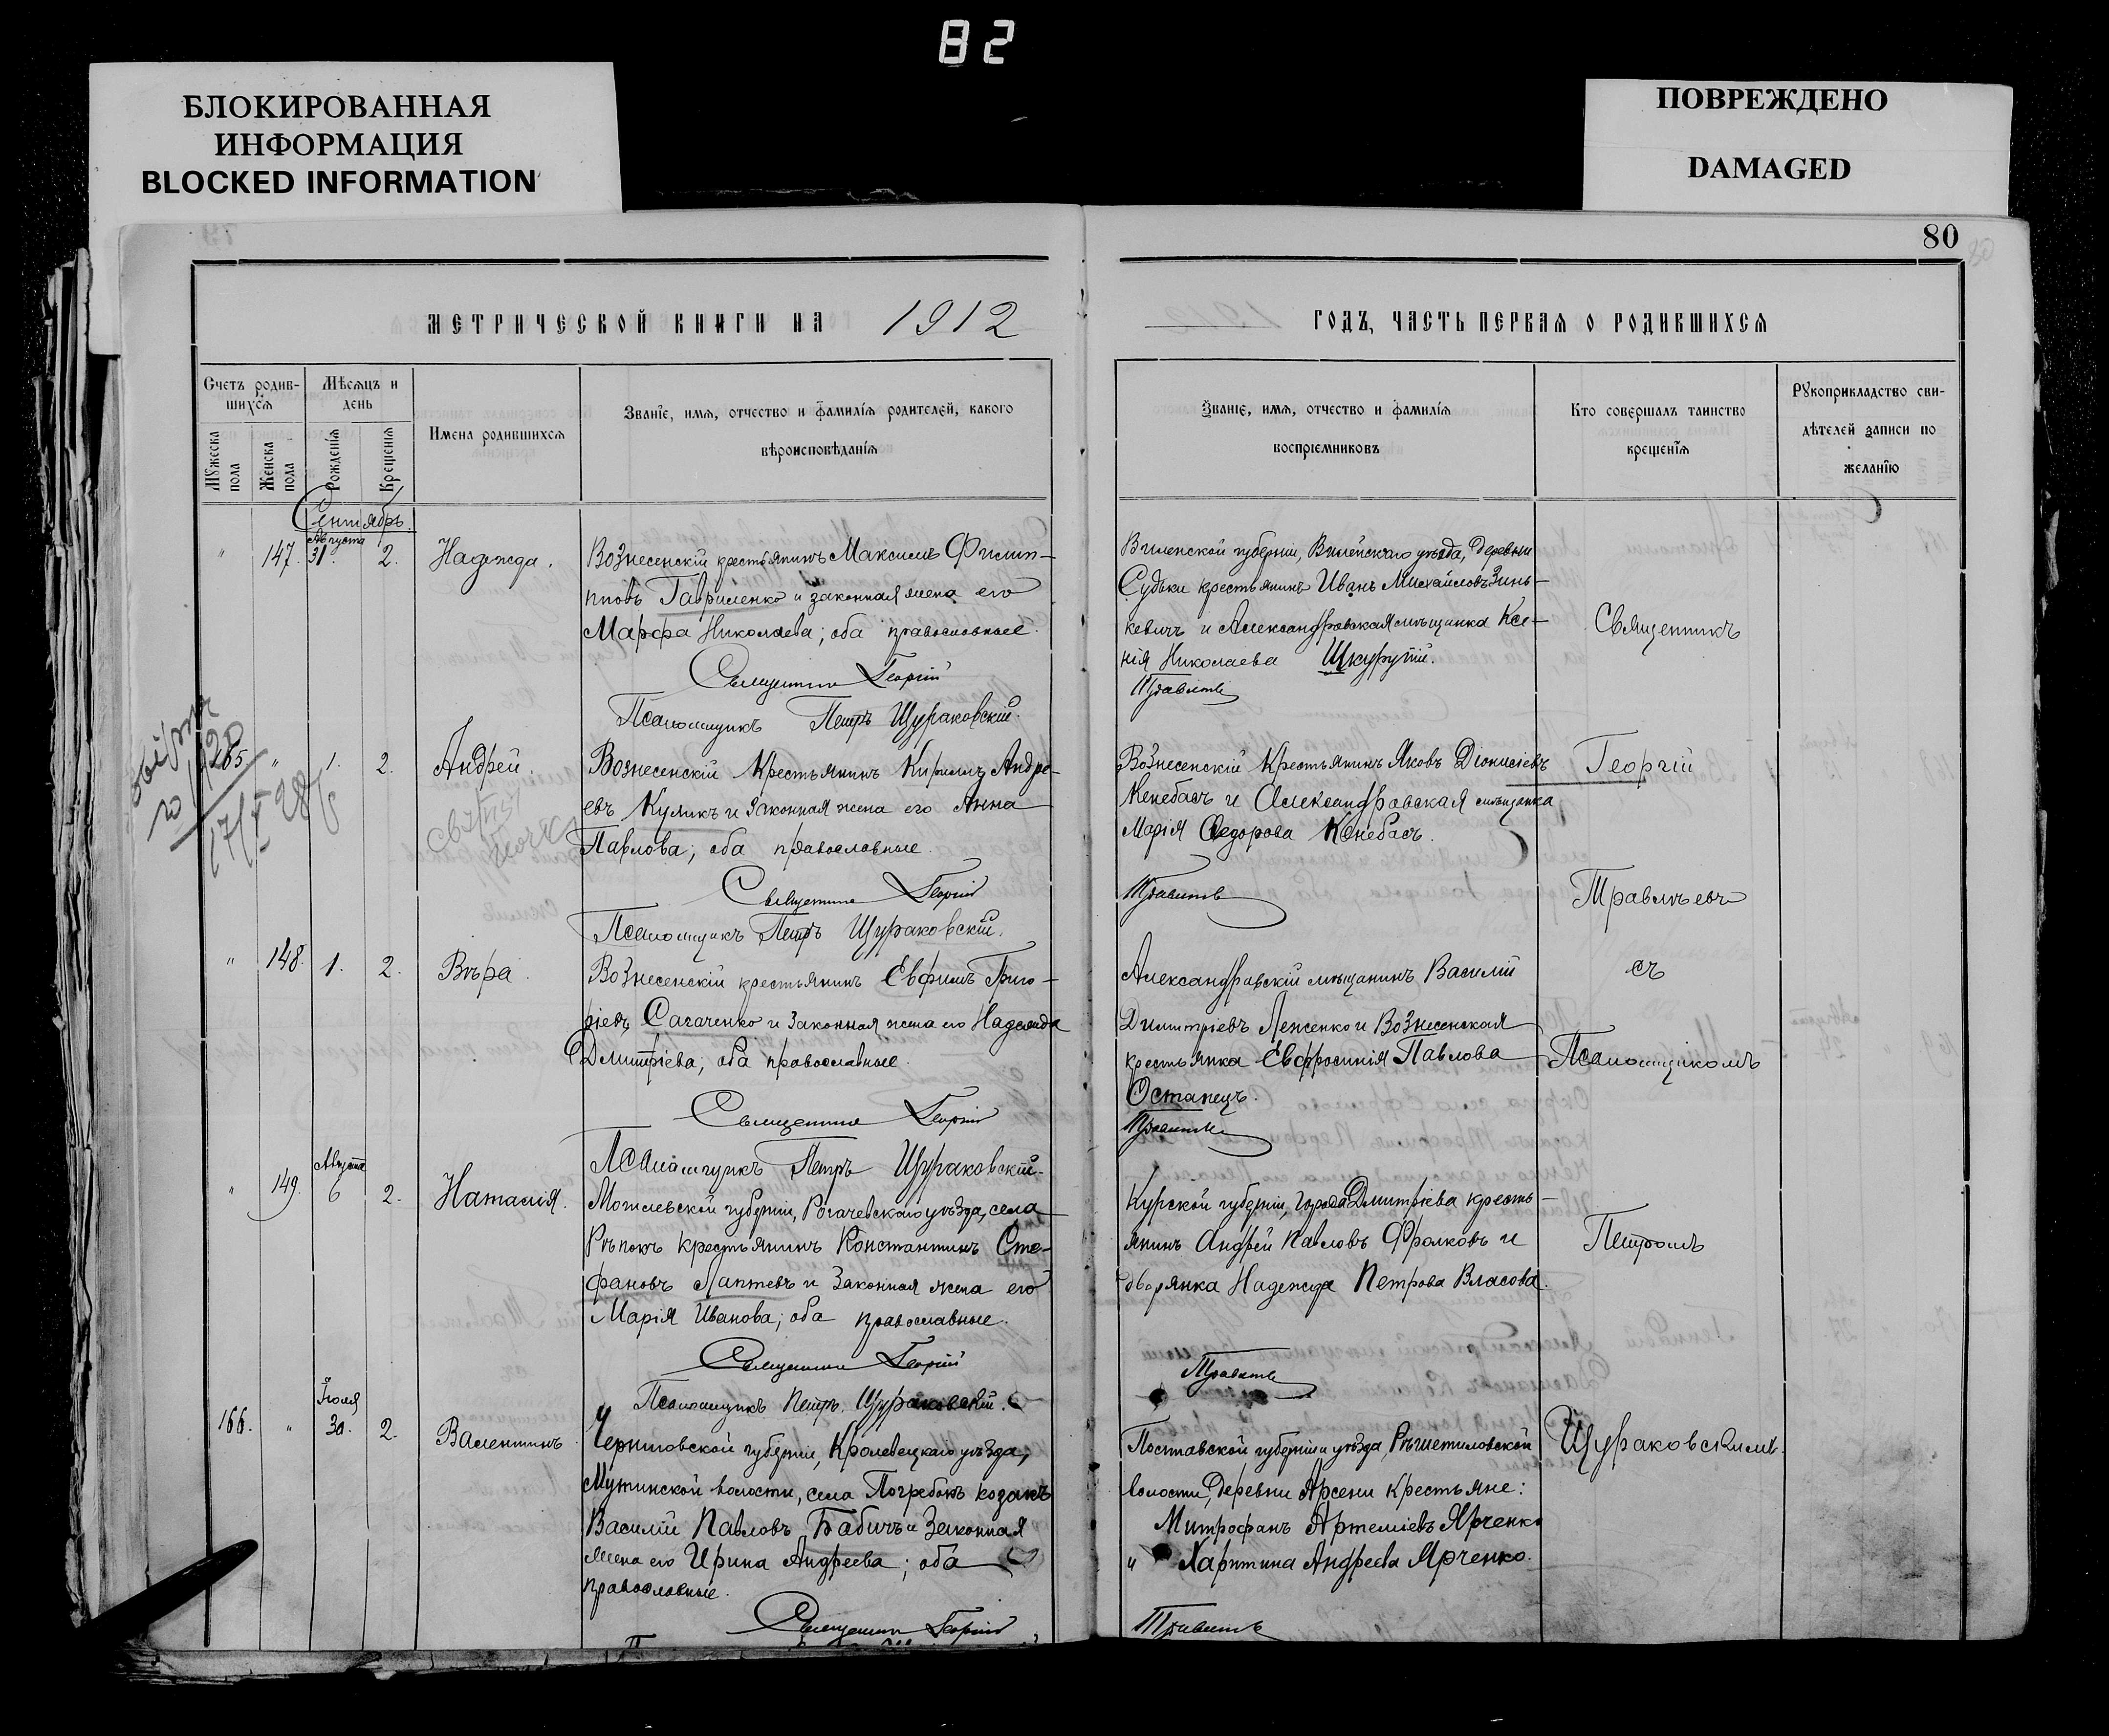 82
БЛОКИРОВАННАЯ
ИНФОРМАЦИЯ
BLOCKED INFORMATION
ПОВРЕЖДЕНО
DAMAGED
80
МЕТРИЧЕСКОЙ КНИГИ НА 1912
ГОДЪ, ЧАСТЬ ПЕРВАЯ О РОДИВШИХСЯ
Счетъ родив-
шихся
Мѣсяцъ и
день
Мужеска
пола
Женска
пола
Рожденія
Крещенія
Имена родившихся
Званіе, имя, отчество и фамилія родителей, какого
вѣроисповѣданія
Званіе, имя, отчество и фамилія
воспріемниковъ
Кто совершалъ таинство
крещенія
Рукоприкладство сви-
дѣтелей записи по
желанію
Сентябрь.
Августа
" 147. 31. 2. Надежда.
Вознесенскій крестьянинъ Максимъ Филип-
повъ Гавриленко и законная жена его
Марфа Николаева; оба православные.
Священникъ Георгій
Псаломщикъ Петръ Щураковскій.
Виленской губерніи, Вилейскаго уѣзда, деревни
Судьки крестьянинъ Иванъ Михайловъ Зинь-
кевичъ и Александровская мѣщанка Ксе-
нія Николаева Шкурупій.
Травлѣевъ
Священникъ
165. " 1. 2. Андрей.
Вознесенскій крестьянинъ Кириллъ Андре-
евъ Куликъ и законная жена его Анна
Павлова; оба православные.
Священникъ Георгій
Псаломщикъ Петръ Щураковскій.
Вознесенскій крестьянинъ Яковъ Діонисіевъ
Кенебасъ и Александровская мѣщанка
Марія Ѳедорова Кенебасъ.
Травлѣевъ
Георгій
Травлѣевъ
" 148. 1. 2. Вѣра.
Вознесенскій крестьянинъ Евфимъ Григо-
ріевъ Сагаченко и законная жена его Надежда
Дмитріева; оба православные.
Священникъ Георгій
Псаломщикъ Петръ Щураковскій.
Александровскій мѣщанинъ Василій
Димитріевъ Леженко и Вознесенская
крестьянка Евфросинія Павлова
Останецъ.
Травлѣевъ
съ
Псаломщикомъ
Августа
" 149. 6 2. Наталія.
Могилевской губерніи, Рогачевскаго уѣзда, села
Рѣпокъ крестьянинъ Константинъ Сте-
фановъ Лаптевъ и законная жена его
Марія Иванова; оба православные.
Священникъ Георгій
Псаломщикъ Петръ Щураковскій.
Курской губерніи, города Дмитріева кресть-
янинъ Андрей Павловъ Фролковъ и
дворянка Надежда Петрова Власова.
Травлѣевъ
Петромъ
Іюля
166. " 30. 2. Валентинъ
Черниговской губерніи, Кролевецкаго уѣзда,
Мутинской волости, села Погребокъ козакъ
Василій Павловъ Бабичъ и законная
жена его Ирина Андреева; оба
православные.
Священникъ Георгій
Полтавской губерніи и уѣзда, Рѣшетиловской
волости, деревни Арсени крестьяне:
Митрофанъ Артеміевъ Ярченко
и Харитина Андреева Ярченко.
Травлѣевъ
Щураковскимъ.